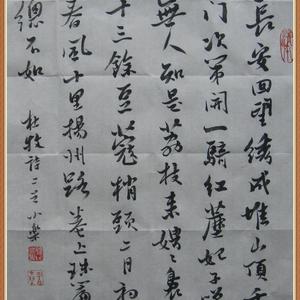 長安回望繡成堆山頂千
門次第開一騎紅塵妃子笑
無人知是荔枝來娉〻裊
十三餘豆蔻梢頭二月初
春風十里揚州路卷上珠簾
總不如 杜牧詩二首 小樂